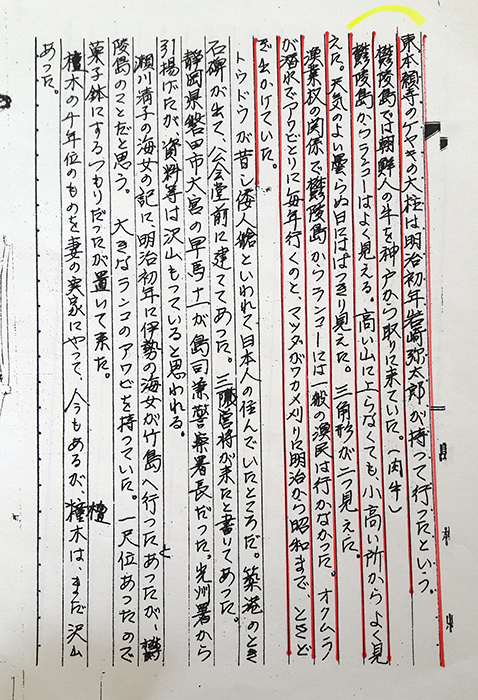 東本願寺のケヤキの大柱は、明治初年岩崎弥太郎が持って行ったという。
欝陵島では朝鮮人の牛を神戸から取りに来ていた。(肉牛)
欝陵島からランコーはよく見える。高い山に上らなくても、小高い所からよく見
えた。天気のよい曇らぬ日にははっきり見えた。三角形が二つ見えた。
漁業权の関係で欝陵島からランコーには一般の漁民は行かなかった。オクムラ
が潜水でアワビとりに毎年行くのと、マツダがワカメ刈りに明治から昭和まで、ときど
き出かけていた。
トウドウが昔し倭人艙といわれて日本人の住んでいたところだ。築港のとき
石碑が出て、公会堂前に建ててあった。三陟营将が来たと書いてあった。
静岡県磐田市大宮の早馬十が島司兼警察署長だった。光州署から
引揚げたが、資料等は沢山もっていると思われる。
瀬川清子の海女の記に、明治初年に伊勢の海女が竹島へ行ったとあったが、欝
陵島のことだと思う。 大きなランコのアワビを持っていた。一尺位あったので
菓子鉢にするつもりだったが置いて来た。
檀木の千年位のものを妻の実家にやって、今うもあるが檀木は、まだ沢山
あった。